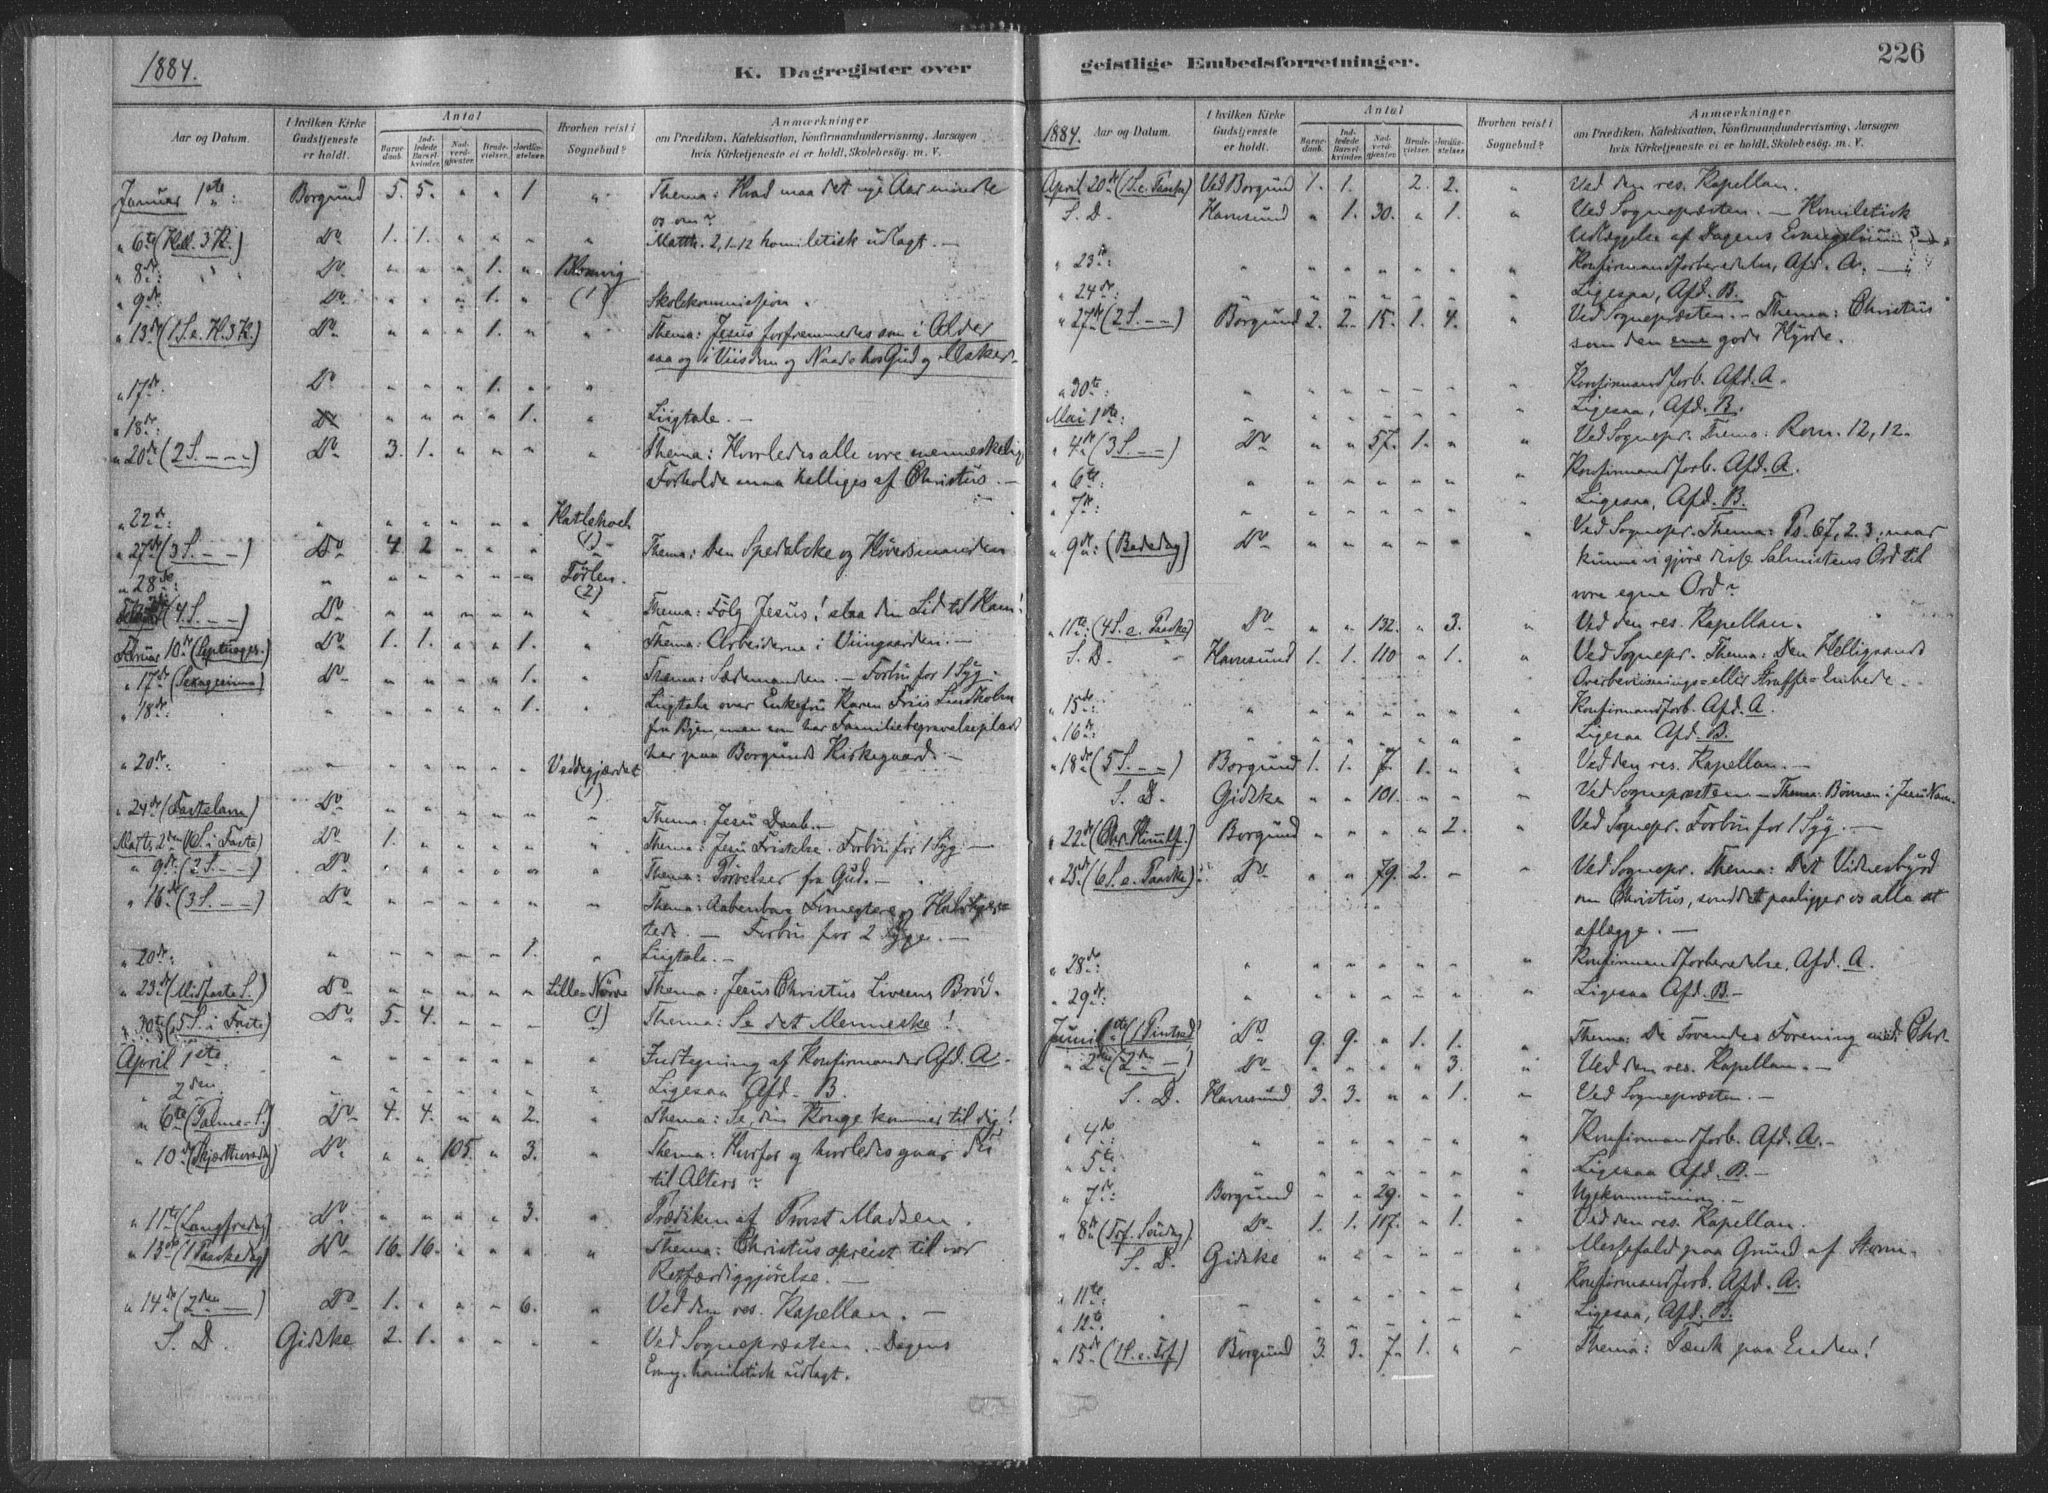 1884.
K. Dagregister over
Aar og Datum.
I hvilken Kirke Gudstjeneste er holdt.
Antal
Barnedaab.
Indledede Barselkvinder.
Nadverdgjæster.
Brudevielser.
Jordfæstelser.
Hvorhen reist i Sognebud?
Anmærkninger
om Prædiken, Katekisation, Konfirmandundervisning, Aarsagen
hvis Kirketjeneste ei er holdt, Skolebesøg. m. V.
Januar 1ste: Borgund 5. 5. " " 1. " Thema: Hvad maa det nye Aar minde
os om?
" 6te (Hell. 3 K.) Do 1. 1. " " " " Matth. 2, 1-12 homiletisk udlagt. —
" 8de: " Do " " " 1. "
" 9de: Do " " " 1. " (1) Skolekommission.
" 13de (1 S. e. H. 3 K.) Do " " " 1. " " Thema: Jesus forfremmedes som i Alder
saa og i Viisdom og Naade hos Gud og Msker.
" 17de: Do " " " 1. " "
" 18de: " " " " 1. " Liigtale. —
" 20de (2 S. - - -) Do 3. 1. " " " " Thema: Hvorledes alle vore menneskelige
Forholde maa helliges af Christus. —
" 22de: " " " " " "
(1)
" 27de (3 S. - -) Do 4. 2 " " " " Thema: Den Spedalske og Høvedsmanden
" 28de: " " " " " "
(2)
(4 S. - -) Do " " " " " " Thema: Følg Jesus! slaa din Lid til Ham!
Februar 10de (Septuages.) Do 1. 1. " " 1. " Thema: Arbeiderne i Viingaarden. —
" 17de (Sexagesima) Do " " " " 1. " Thema: Sædemanden. — Forbøn for 1 Syg. —
" 18de: " " " " " 1. " Liigtale over Enkefru Karen Friis Lindholm
fra Byen, men som har Familiebegravelsesplads
her paa Borgunds Kirkegaard. —
" 20de: " " " " " " Veddegjærdet
(1)
" 24de (Fastelavn) Do " " " " " " Thema: Jesu Daab. —
Marts 2den (1 S. i Faste) Do 1. " " " " " Thema: Jesu Fristelse. Forbøn for 1 Syg. —
" 9de (2 S. - -) Do " " " " " " Thema: Prøvelser fra Gud. —
" 16de (3 S. - -) Do " " " " " " Thema: Aabenbare Fornegtere og
— Forbøn for 2 Syge. —
" 20de: " " " " " 1. " Liigtale. —
" 23de (Midfaste S.) Do " " " " " Lille-Nørve Thema: Jesus Christus Livsens Brød.
" 30te (5 S. i Faste) Do 5. 4. " " " (1) Thema: Se det Menneske!
April 1ste: " " " " " " " Indtegning af Konfirmander Afd. A.
" 2den " " " " " " " Ligesaa Afd. B.
" 6te (Palme-S.) Do 4. 4. " " 2. " Thema: Se, din Konge kommer til dig!
" 10de (Skjærthorsdag) Do " " 105. " 3. " Thema: Hvorfor og hvorledes gaar du
til Alters?
" 11te (Langfredag) Do " " " " 3. " Prædiken af Provst Madsen.
" 13de (1 Paaskedag) Do 16. 16. " " " " Thema: Christus opreist til vor
Retfærdiggjørelse. —
" 14de (2den —) Do 1. " " " 6. " Ved den res. Kapellan. —
S. D. Gidske 2. 1. " " " " Ved Sognepræsten. Dagens
Evang. homiletisk udlagt.
geistlige Embedsforretninger.
226
1884.
Aar og Datum.
I hvilken Kirke Gudstjeneste er holdt.
Antal
Barnedaab.
Indledede Barselkvinder.
Nadverdgjæster.
Brudevielser.
Jordfæstelser.
Hvorhen reist i Sognebud?
Anmærkninger
om Prædiken, Katekisation, Konfirmandundervisning, Aarsagen
hvis Kirketjeneste ei er holdt, Skolebesøg. m. V.
April 20de (1 S. e. Paaske) Ved Borgund 1. 1. 2. 2. " Ved den res. Kapellan.
S. D. Hamsund " 1. 30. " 1. " Ved Sognepræsten. — Homiletisk
Udlæggelse af Dagens Evangelium
" 23de: " " " " " " " Konfirmandforberedelse, Afd. A. —
" 24de: " " " " " " " Ligesaa, Afd. B.
" 27de (2 S. - -) Borgund 2. 2. 15. 1. 4. " Ved Sognepræsten. — Thema: Christus
som den ene gode Hyrde.
" 30te: " " " " " " " Konfirmandforb. Afd. A.
Mai 1ste: " " " " " " " Ligesaa, Afd. B.
" 4de (3 S. - -) Do " " 57. 1. " " Ved Sognepr. Thema: Rom. 12, 12.
" 6te " " " " " " " Konfirmandforb. Afd. A.
" 7de " " " " " " " Ligesaa, Afd. B.
" 9de: (Bededag) Do " " " " " " Ved Sognepr. Thema: Ps. 67, 2. 3; naar
kunne vi gjøre disse Salmistens Ord til
vore egne Ord?
" 11te: (4 S. e. Paaske) Do " " 132. " 3. " Ved den res. Kapellan.
S. D. Hamsund 1. 1. 110 " 1. " Ved Sognepr. Thema: Den Helligaands
Overbevisnings- eller Straffe-Embede.
" 15de: " " " " " " " Konfirmandforb. Afd. A.
" 16de: " " " " " " " Ligesaa Afd. B.
" 18de (5 S. - -) Borgund 1. 1. 7. 1. " " Ved den res. Kapellan. —
S. D. Gidske " " 101. " " " Ved Sognepræsten — Thema: Bønnen i Jesu Navn.
" 22de (Chr. Himmelf.) Borgund " " " " 2. " Ved Sognepr. Forbøn for 1 Syg. —
" 25de (6 S. e. Paaske): Do " " 79. 2. " " Ved Sognepr. Thema: Det Vidnesbyrd
om Christus, som det paaligger os alle at
aflægge. —
" 28de: " " " " " " " Konfirmandforberedelse, Afd. A.
" 29de: " " " " " " " Ligesaa Afd. B. —
Juni 1ste (1 Pintsed.) Do 9. 9. " 1. 1. " Thema: De Troendes Forening med Chr.
" 2den (2den —) Do " " " " 3. " Ved den res. Kapellan. —
S. D. Hamsund 3. 3. " " 1. " Ved Sognepræsten. —
" 4de " " " " " " " Konfirmandforb. Afd. A. —
" 5te " " " " " " " Ligesaa Afd. B. —
" 7de: Borgund " " 29. " " " Ugekommunion. —
" 8de (Tref. Søndag) Do 1. 1. 107. " 1. " Ved den res. Kapellan.
S. D. Gidske " " " " " " Messefald paa Grund af Storm.
" 11te: " " " " " " " Konfirmandforb. Afd. A.
" 12te " " " " " " " Ligesaa, Afd. B.
" 15de (1 S. e. Tref.) Borgund 3. 3. 7. 1. " " Thema: Tænk paa Enden!